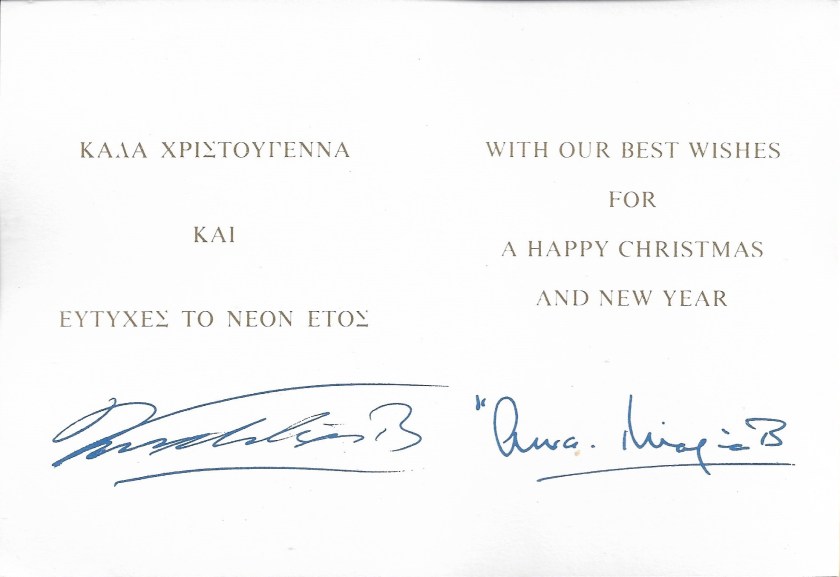 ΚΑΛΑ ΧΡΙΣΤΟΥΓΕΝΝΑ
ΚΑΙ
ΕΥΤΥΧΕΣ ΤΟ ΝΕΟΝ ΕΤΟΣ
WITH OUR BEST WISHES
FOR
A HAPPY CHRISTMAS
AND NEW YEAR
Άννα. Μαρία Β